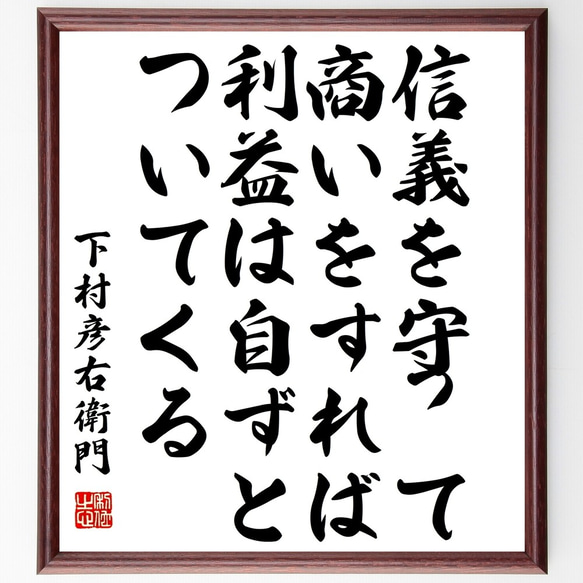 信義を守って
商いをすれば
利益は自ずと
ついてくる
下村彦右衛門